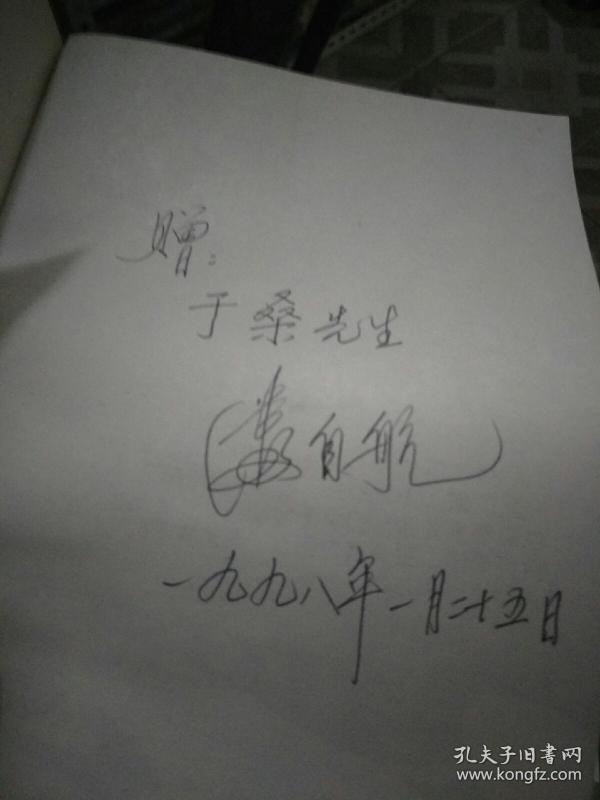 赠：
于桑先生
娄自航
一九九八年一月二十五日
孔夫子旧書网
www.kongfz.com